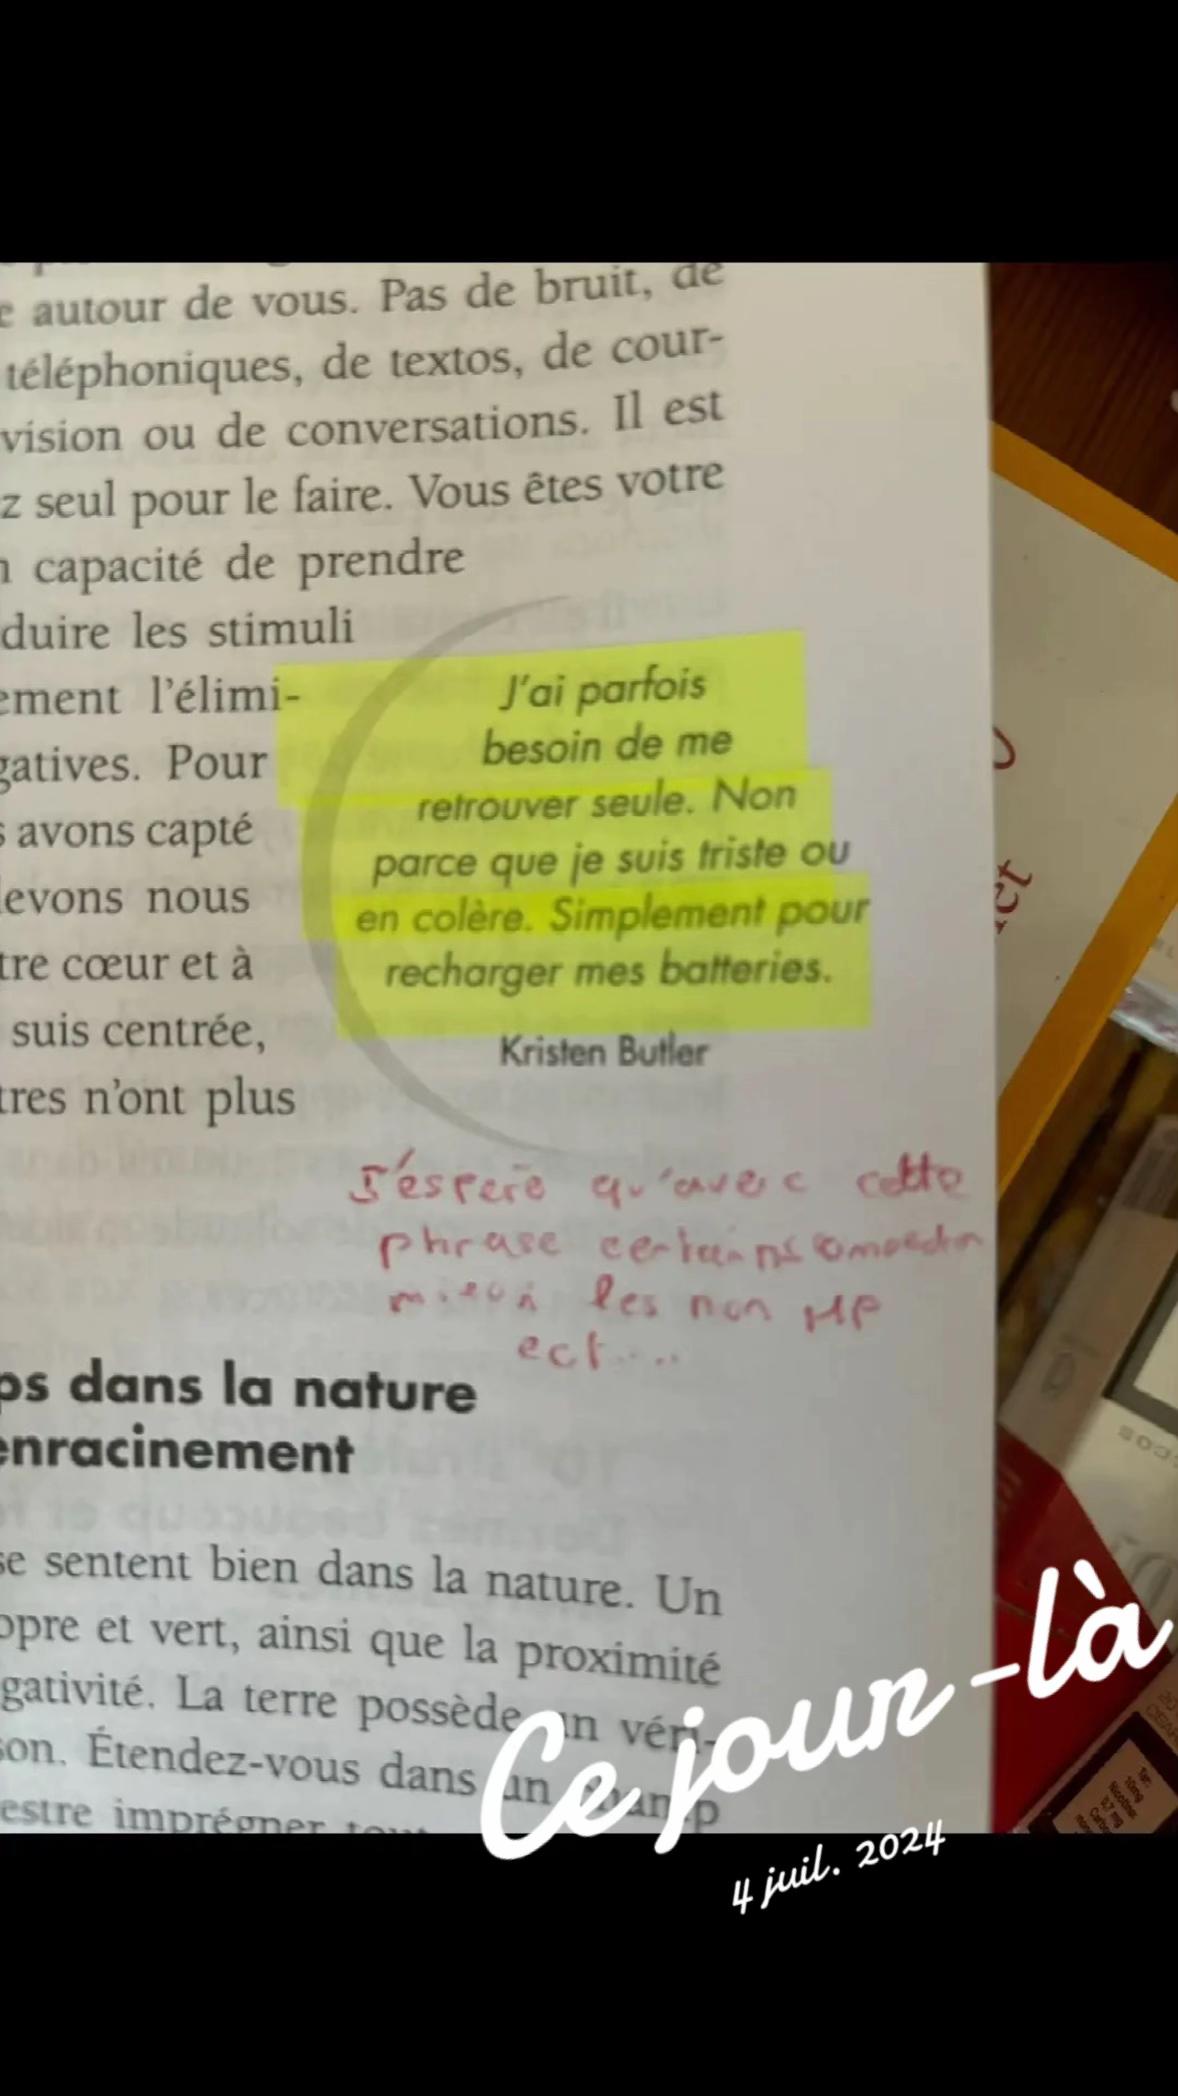 e autour de vous. Pas de bruit, de
téléphoniques, de textos, de cour-
vision ou de conversations. Il est
z seul pour le faire. Vous êtes votre
capacité de prendre
duire les stimuli
ement l'élimi-
gatives. Pour
s avons capté
levons nous
tre cœur et à
suis centrée,
tres n'ont plus
J'ai parfois
besoin de me
retrouver seule. Non
parce que je suis triste ou
en colère. Simplement pour
recharger mes batteries.
Kristen Butler
J'espère qu'avec cette
phrase certains
les non HP
ect....
ps dans la nature
enracinement
se sentent bien dans la nature. Un
opre et vert, ainsi que la proximité
gativité. La terre possède un véri-
son. Étendez-vous dans un champ
estre imprégner
Ce jour-là
4 juil. 2024